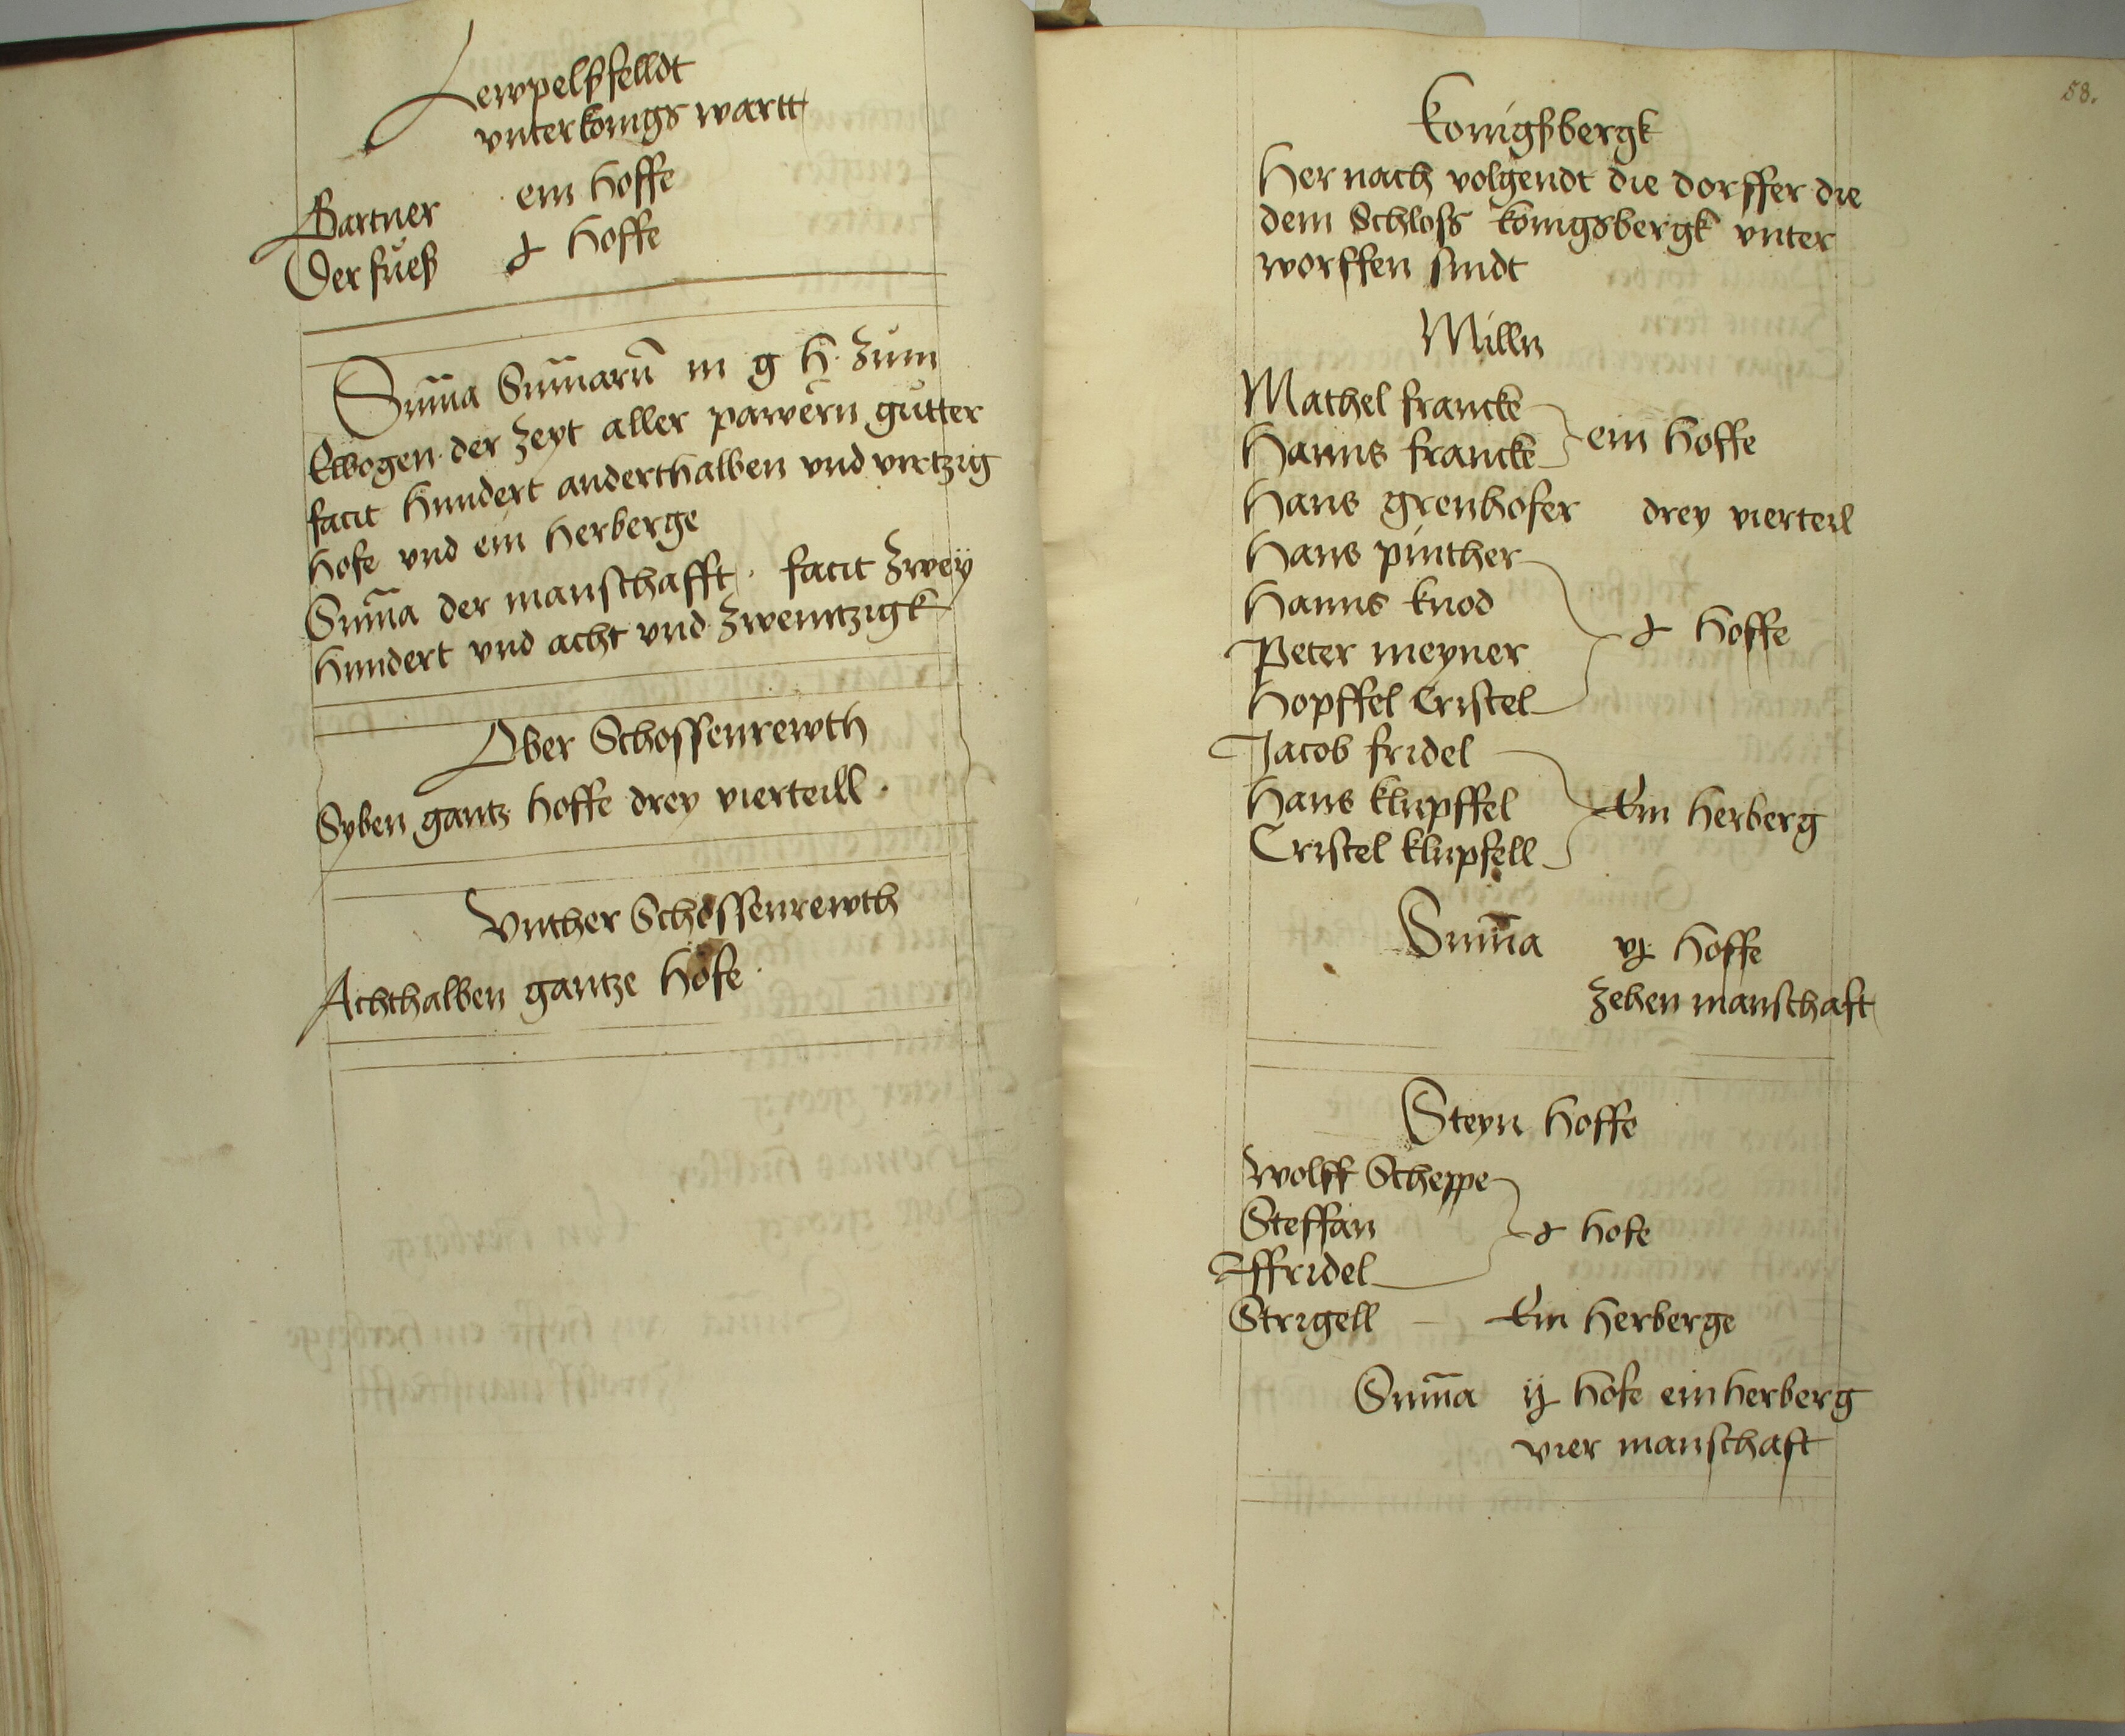 Lewpelßfelldt
vnterkonigs wartt
Gartner ein hoffe
Der fueß ɟ hoffe
Suma Sumaru m g h zum
Elbogen der zeyt aller pawern gutter
facit hundert anderthalben vnd virtzig
hofe vnd ein herberge
Suma der manschafft facit zwey
hundert vnd acht vnd zwentzigk
Ober Schossenrewth
Syben gantz hoffe drey vierteill
Vnther Schossenrewth
Achthalben gantze hofe
58.
Konigßbergk
Her nach volgendt die dorffer die
dem Schloss konigsbergk vnter
worffen sindt
Milln
Mathel francke
Hanns francke ein hoffe
Hans grenhofer drey vierteil
Hans pinther
Hanns knod
Peter meyner ɟ hoffe
Hopffel Cristel
Jacob fridel
Hans klupffel Ein herberg
Cristel klupfell
Suma vɟ hoffe
zehen manschaft
Steyn hoffe
Wolff Scheppe
Steffan ɟ hofe
Affridel
Strigell – Ein herberge
Suma ijɟ hofe ein herberg
vier manschaft